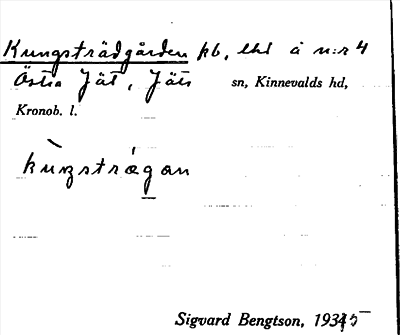 Kungsträdgården pb, lht å n:r 4
Östra Jät, Jäts sn, Kinnevalds hd,
Kronob. l.
kùŋstrágan
Sigvard Bengtson, 1935